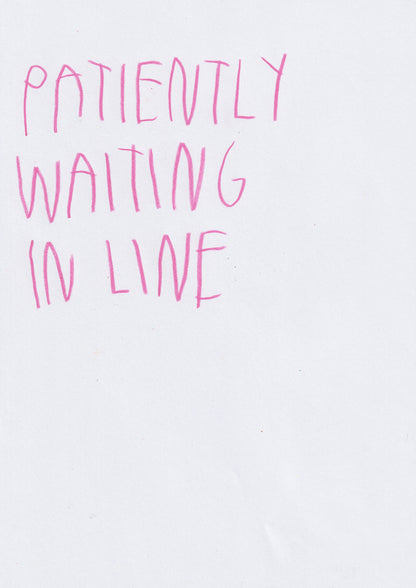 PATIENTLY
WAITING
IN LINE